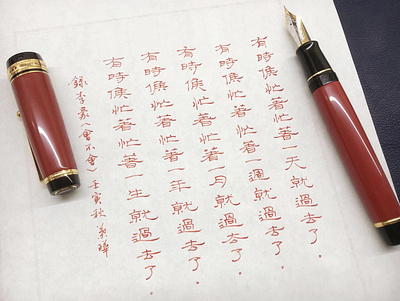 有時候忙著忙著一天就過去了.
有時候忙著忙著一週就過去了.
有時候忙著忙著一月就過去了.
有時候忙著忙著一年就過去了.
有時候忙著忙著一生就過去了.
錄李豪〈會不會〉壬寅秋